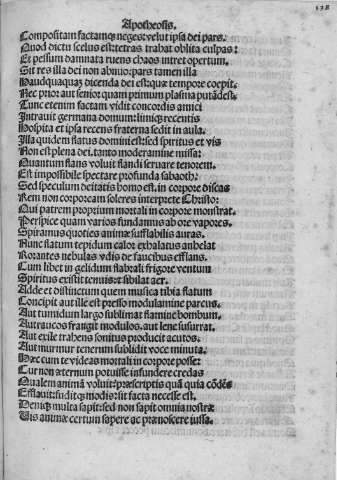 Apotheosis.
Compositam factamq; neget: velut ipsa dei pars.
Quod dictu scelus est: tetras trahat oblita culpas:
Et pessum damnata ruens chaos intret opertum.
Sit res illa dei non abnuo: pars tamen illa
Haudquaquaz dicenda dei est: quæ tempore coepit.
Nec prior aut senior quam primum plasma putādest.
Tunc etenim factam vidit concordis amici
Intrauit germana domum: limiq; recentis
Hospita et ipsa recens fraterna sedit in aula.
Illa quidem flatus domini est: sed spiritus et vis
Non est plena dei. tanto moderamine missa:
Quantum flans voluit flandi seruare tenorem.
Est impossibile spectare profunda sabaoth:
Sed speculum deitatis homo est. in corpore discas
Rem non corpoream solers interprete Christo:
Qui patrem proprium mortali in corpore monstrat.
Perspice quam varios fundamus ab ore vapores.
Spiramus quoties animæ sufflabilis auras.
Nunc flatum tepidum calor exhalatus anhelat
Rorantes nebulas vdis de faucibus efflans.
Cum libet in gelidum flabrali frigore ventum
Spiritus existit tenuisq; sibilat aer.
Adde et distinctum quem musica tibia flatum
Concipit aut ille est presso modulamine parcus.
Aut tumidum largo sublimat flamine bombum.
Aut raucos frangit modulos. aut lene susurrat.
Aut exile trahens sonitus producit acutos.
Aut murmur tenerum sublidit voce minuta.
Hæc cum te videas mortali in corpore posse:
Cur non æternum potuisse infundere credas
Qualem animā voluit: præscriptis quā quia cōdēs
Efflauit: suditq; modis: sit facta necesse est.
Deniq; multa sapit: sed non sapit omnia nostræ
Vis animæ certum sapere ac prænoscere iussa.